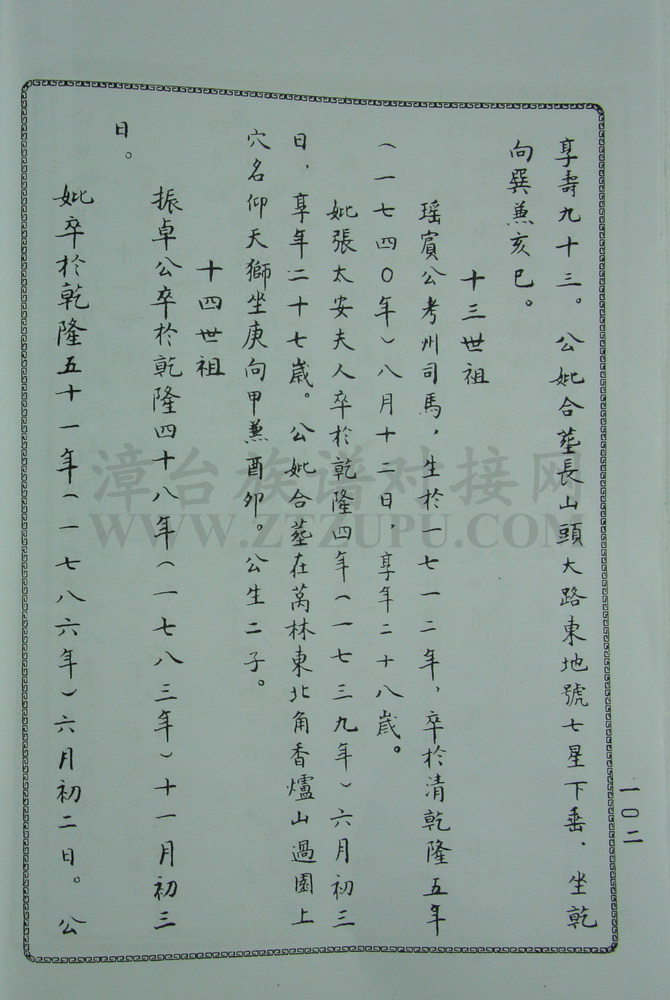 享壽九十三。公妣合塟長山頭大路東地號七星下垂．坐乾
向巽兼亥巳。
十三世祖
瑶賓公考州司馬，生於一七一二年，卒於清乾隆五年
(一七四〇年)八月十二日，享年二十八歲。
妣張太安夫人卒於乾隆四年(一七三九年)六月初三
日，享年二十七歲。公妣合塟在萬林東北角香爐山過園上
穴名仰天獅坐庚向甲兼酉卯。公生二子。
十四世祖
振卓公卒於乾隆四十八年(一七八三年)十一月初三
日。
妣卒於乾隆五十一年(一七八六年)六月初二日。公
一〇二
漳台族谱对接网
WWW.ZTZUPU.COM